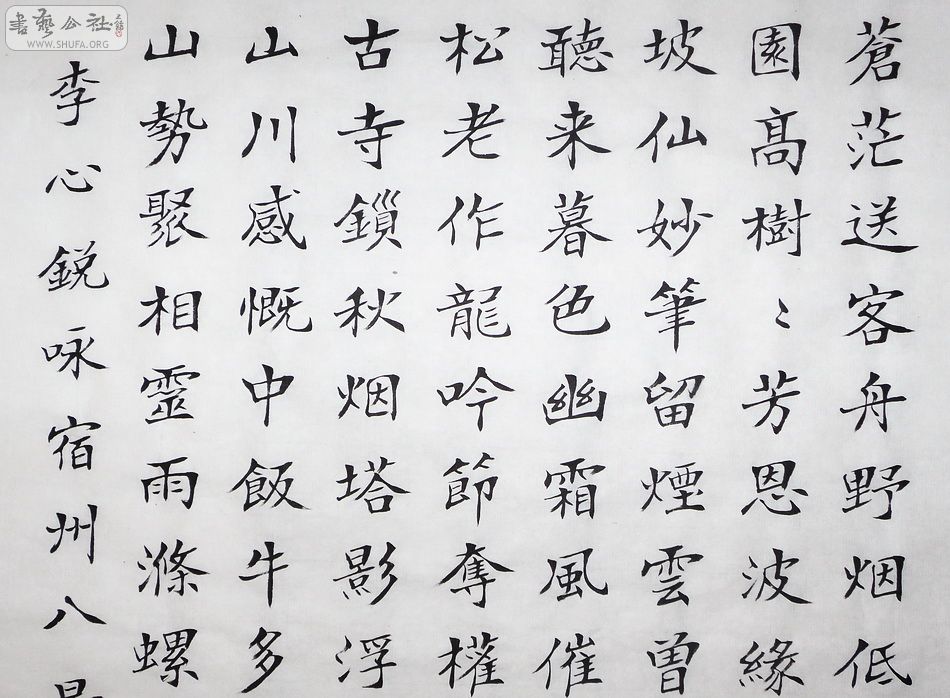 書藝公社
WWW.SHUFA.ORG
蒼茫送客舟野烟低
園高樹〻芳恩波緣
坡仙妙筆留煙雲曾
聽来暮色幽霜風催
松老作龍吟節奪權
古寺鎖秋烟塔影浮
山川感慨中飯牛多
山勢聚相靈雨滌螺
李心鋭咏宿州八